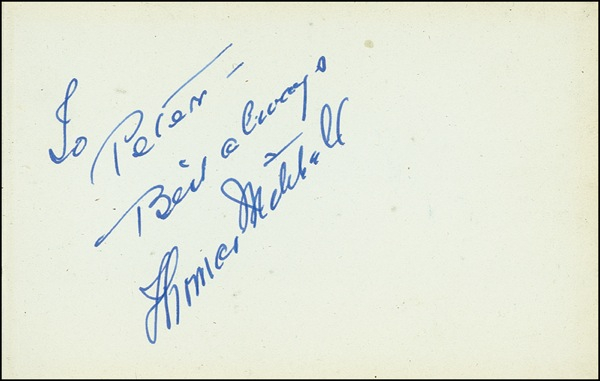 To Peter –
Best always
Thomas Mitchell